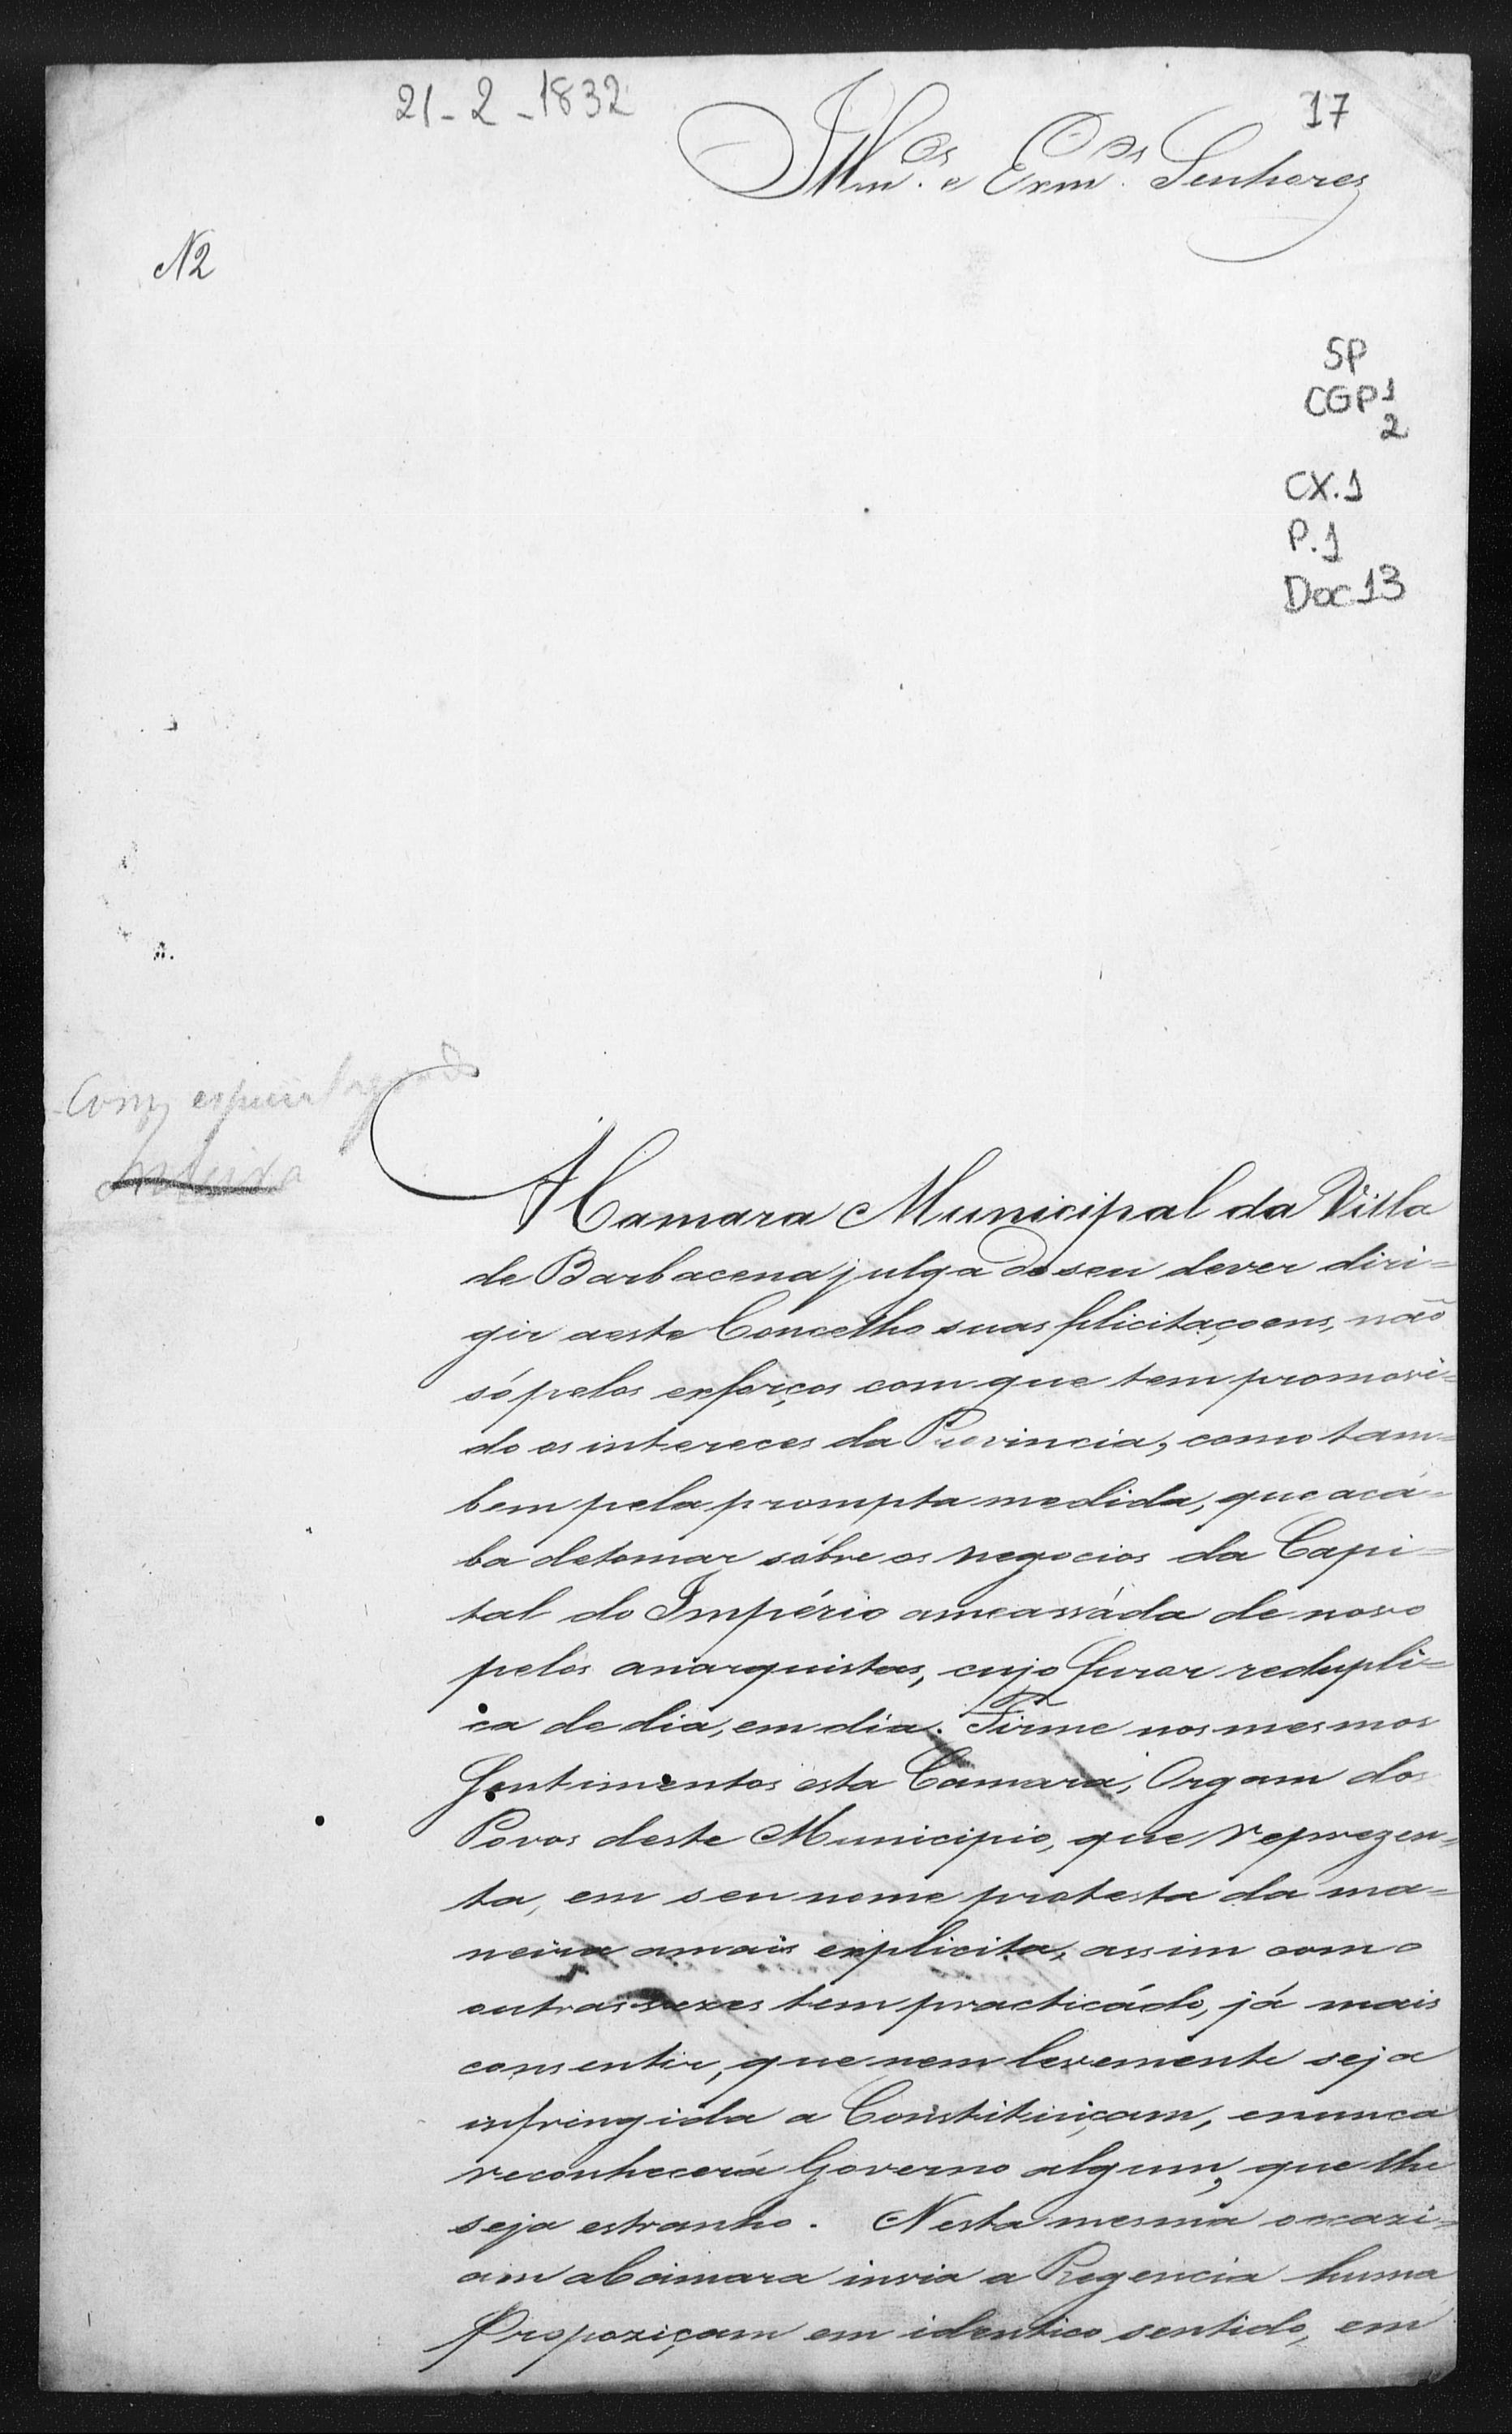 21-2-1832
17
Illm.os e Exm.os Senhores
N2
SP
CGP1
2
CX.1
P.1
Doc13
A Camara Municipal da Villa
de Barbacena julga do seu dever diri=
gir a este Concelho suas filicitaçoens, não
só pelos exforços com que tem promovi=
do os intereces da Provincia, como tam=
bem pela prompta medida, que acá=
ba de tomar sóbre os negocios da Capi=
tal do Império ameassáda de novo
pelos anarquistas, cujo furor redupli=
ca de dia, em dia. Firme nos mesmos
Sentimentos esta Camara, Orgam dos
Povos deste Municipio, que reprezen=
ta, em seu nome protesta da ma=
neira a mais explicita, assim como
outras vezes tem practicádo, já mais
consentir, que nem levemente seja
infringida a Constituiçam, e nunca
reconhecerá Governo algum, que lhe
seja estranho. Nesta mesma occazi=
am a Camara invia a Regencia huma
Propoziçam em identico sentido, em